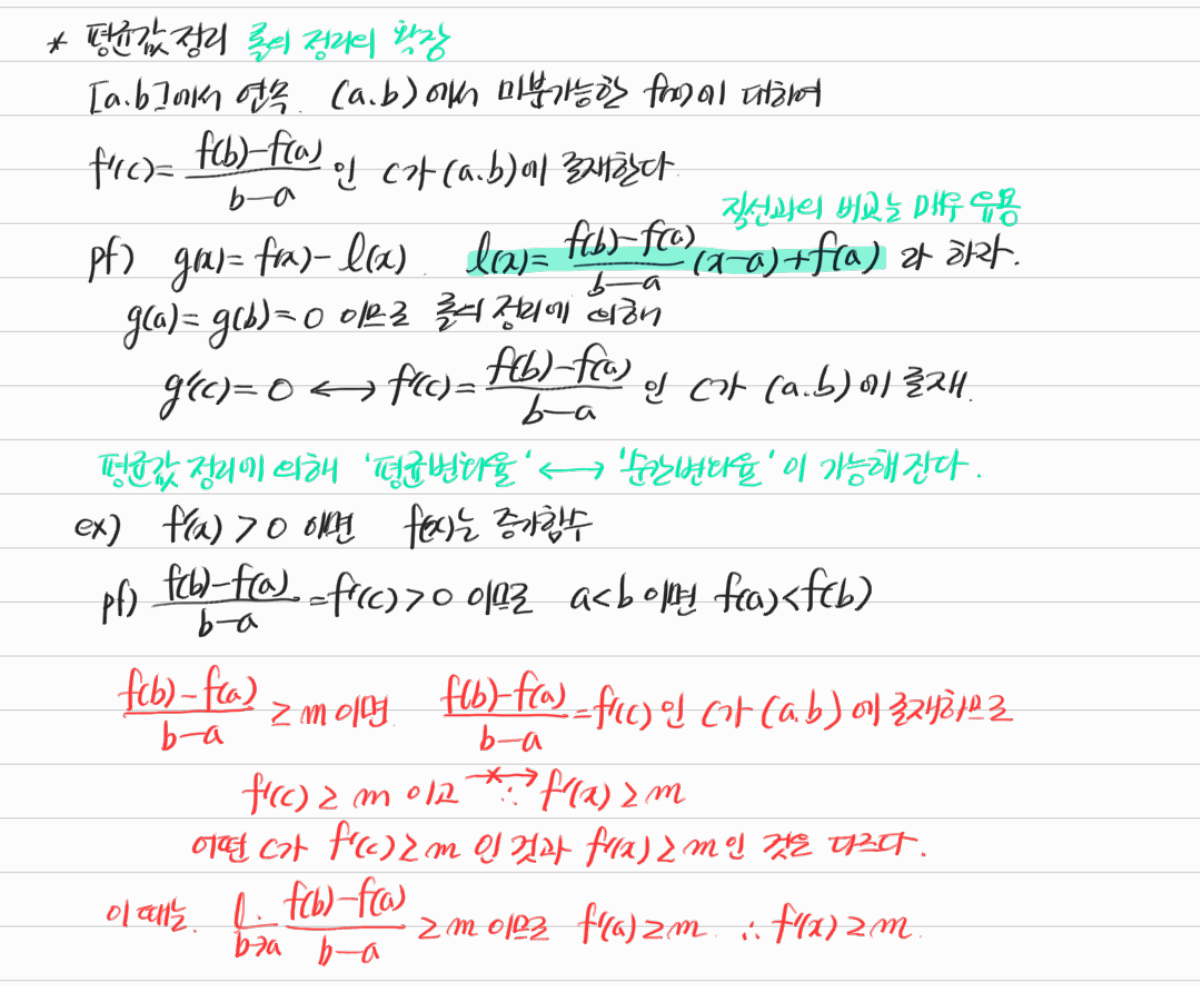 * 평균값 정리 롤의 정리의 확장
[a.b]에서 연속. (a.b)에서 미분가능한 f(x)에 대하여
f'(c)= f(b)-f(a)/b-a 인 c가 (a.b)에 존재한다.
직선과의 비교는 매우 유용
pf) g(x)= f(x)-l(x). l(x)= f(b)-f(a)/b-a (x-a)+f(a) 라 하자.
g(a)= g(b)=0 이므로 롤의 정리에 의해
g'(c)=0 ⟷ f'(c)= f(b)-f(a)/b-a 인 c가 (a.b)에 존재.
평균값 정리에 의해 '평균변화율' ⟷ '순간변화율'이 가능해진다.
ex) f'(x)>0 이면 f(x)는 증가함수
pf) f(b)-f(a)/b-a =f'(c)>0 이므로 a<b 이면 f(a)<f(b)
f(b)-f(a)/b-a ≥m 이면 f(b)-f(a)/b-a =f'(c) 인 c가 (a.b)에 존재하므로
f'(c)≥m 이고 ∴ f'(x)≥m
어떤 c가 f'(c)≥m 인 것과 f'(x)≥m인 것은 다르다.
이 때는 l. b→a f(b)-f(a)/b-a ≥m 이므로 f'(a)≥m. ∴ f'(x)≥m.